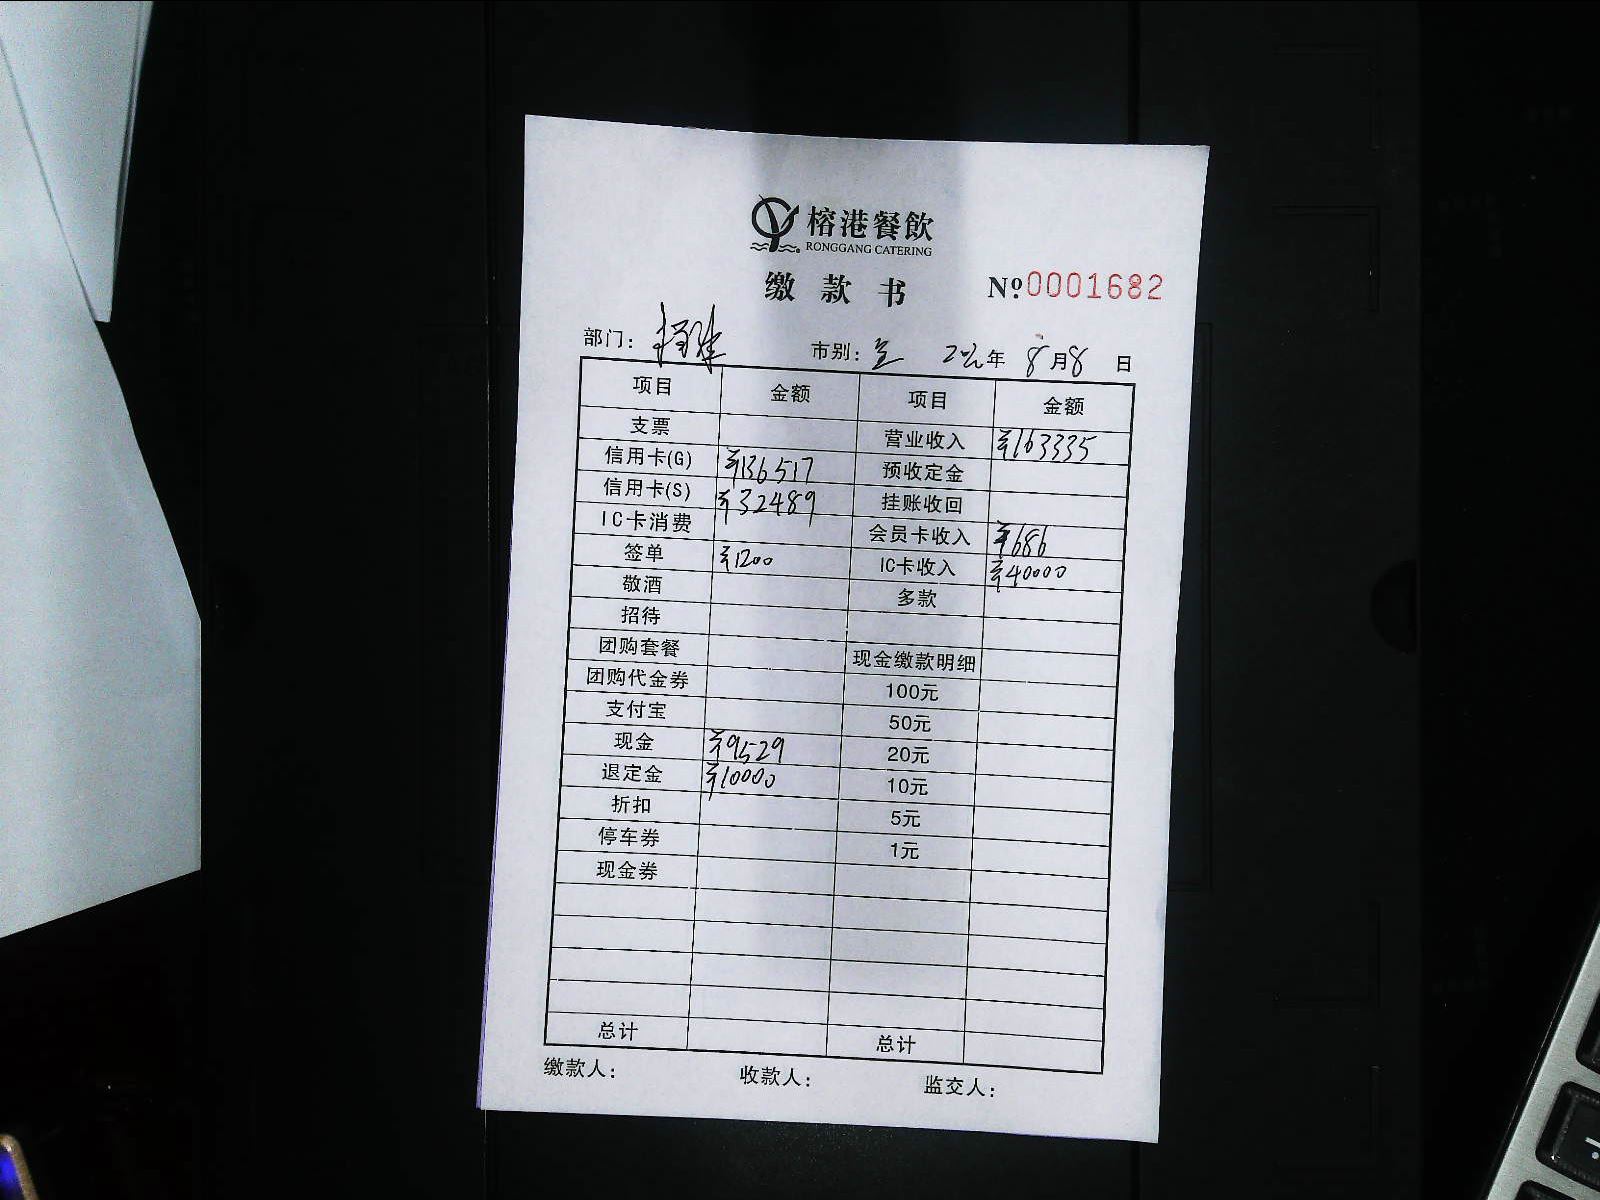 榕港餐飲
RONGGANG CATERING
缴款书 №0001682
部门： 市别： 年 8月8日
项目 金额 项目 金额
支票 营业收入 ¥163335
信用卡(G) ¥136517 预收定金
信用卡(S) ¥32489 挂账收回
IC卡消费 会员卡收入 ¥686
签单 ¥1200 IC卡收入 ¥40000
敬酒 多款
招待
团购套餐 现金缴款明细
团购代金券 100元
支付宝 50元
现金 ¥9529 20元
退定金 ¥10000 10元
折扣 5元
停车券 1元
现金券
总计 总计
缴款人： 收款人： 监交人：